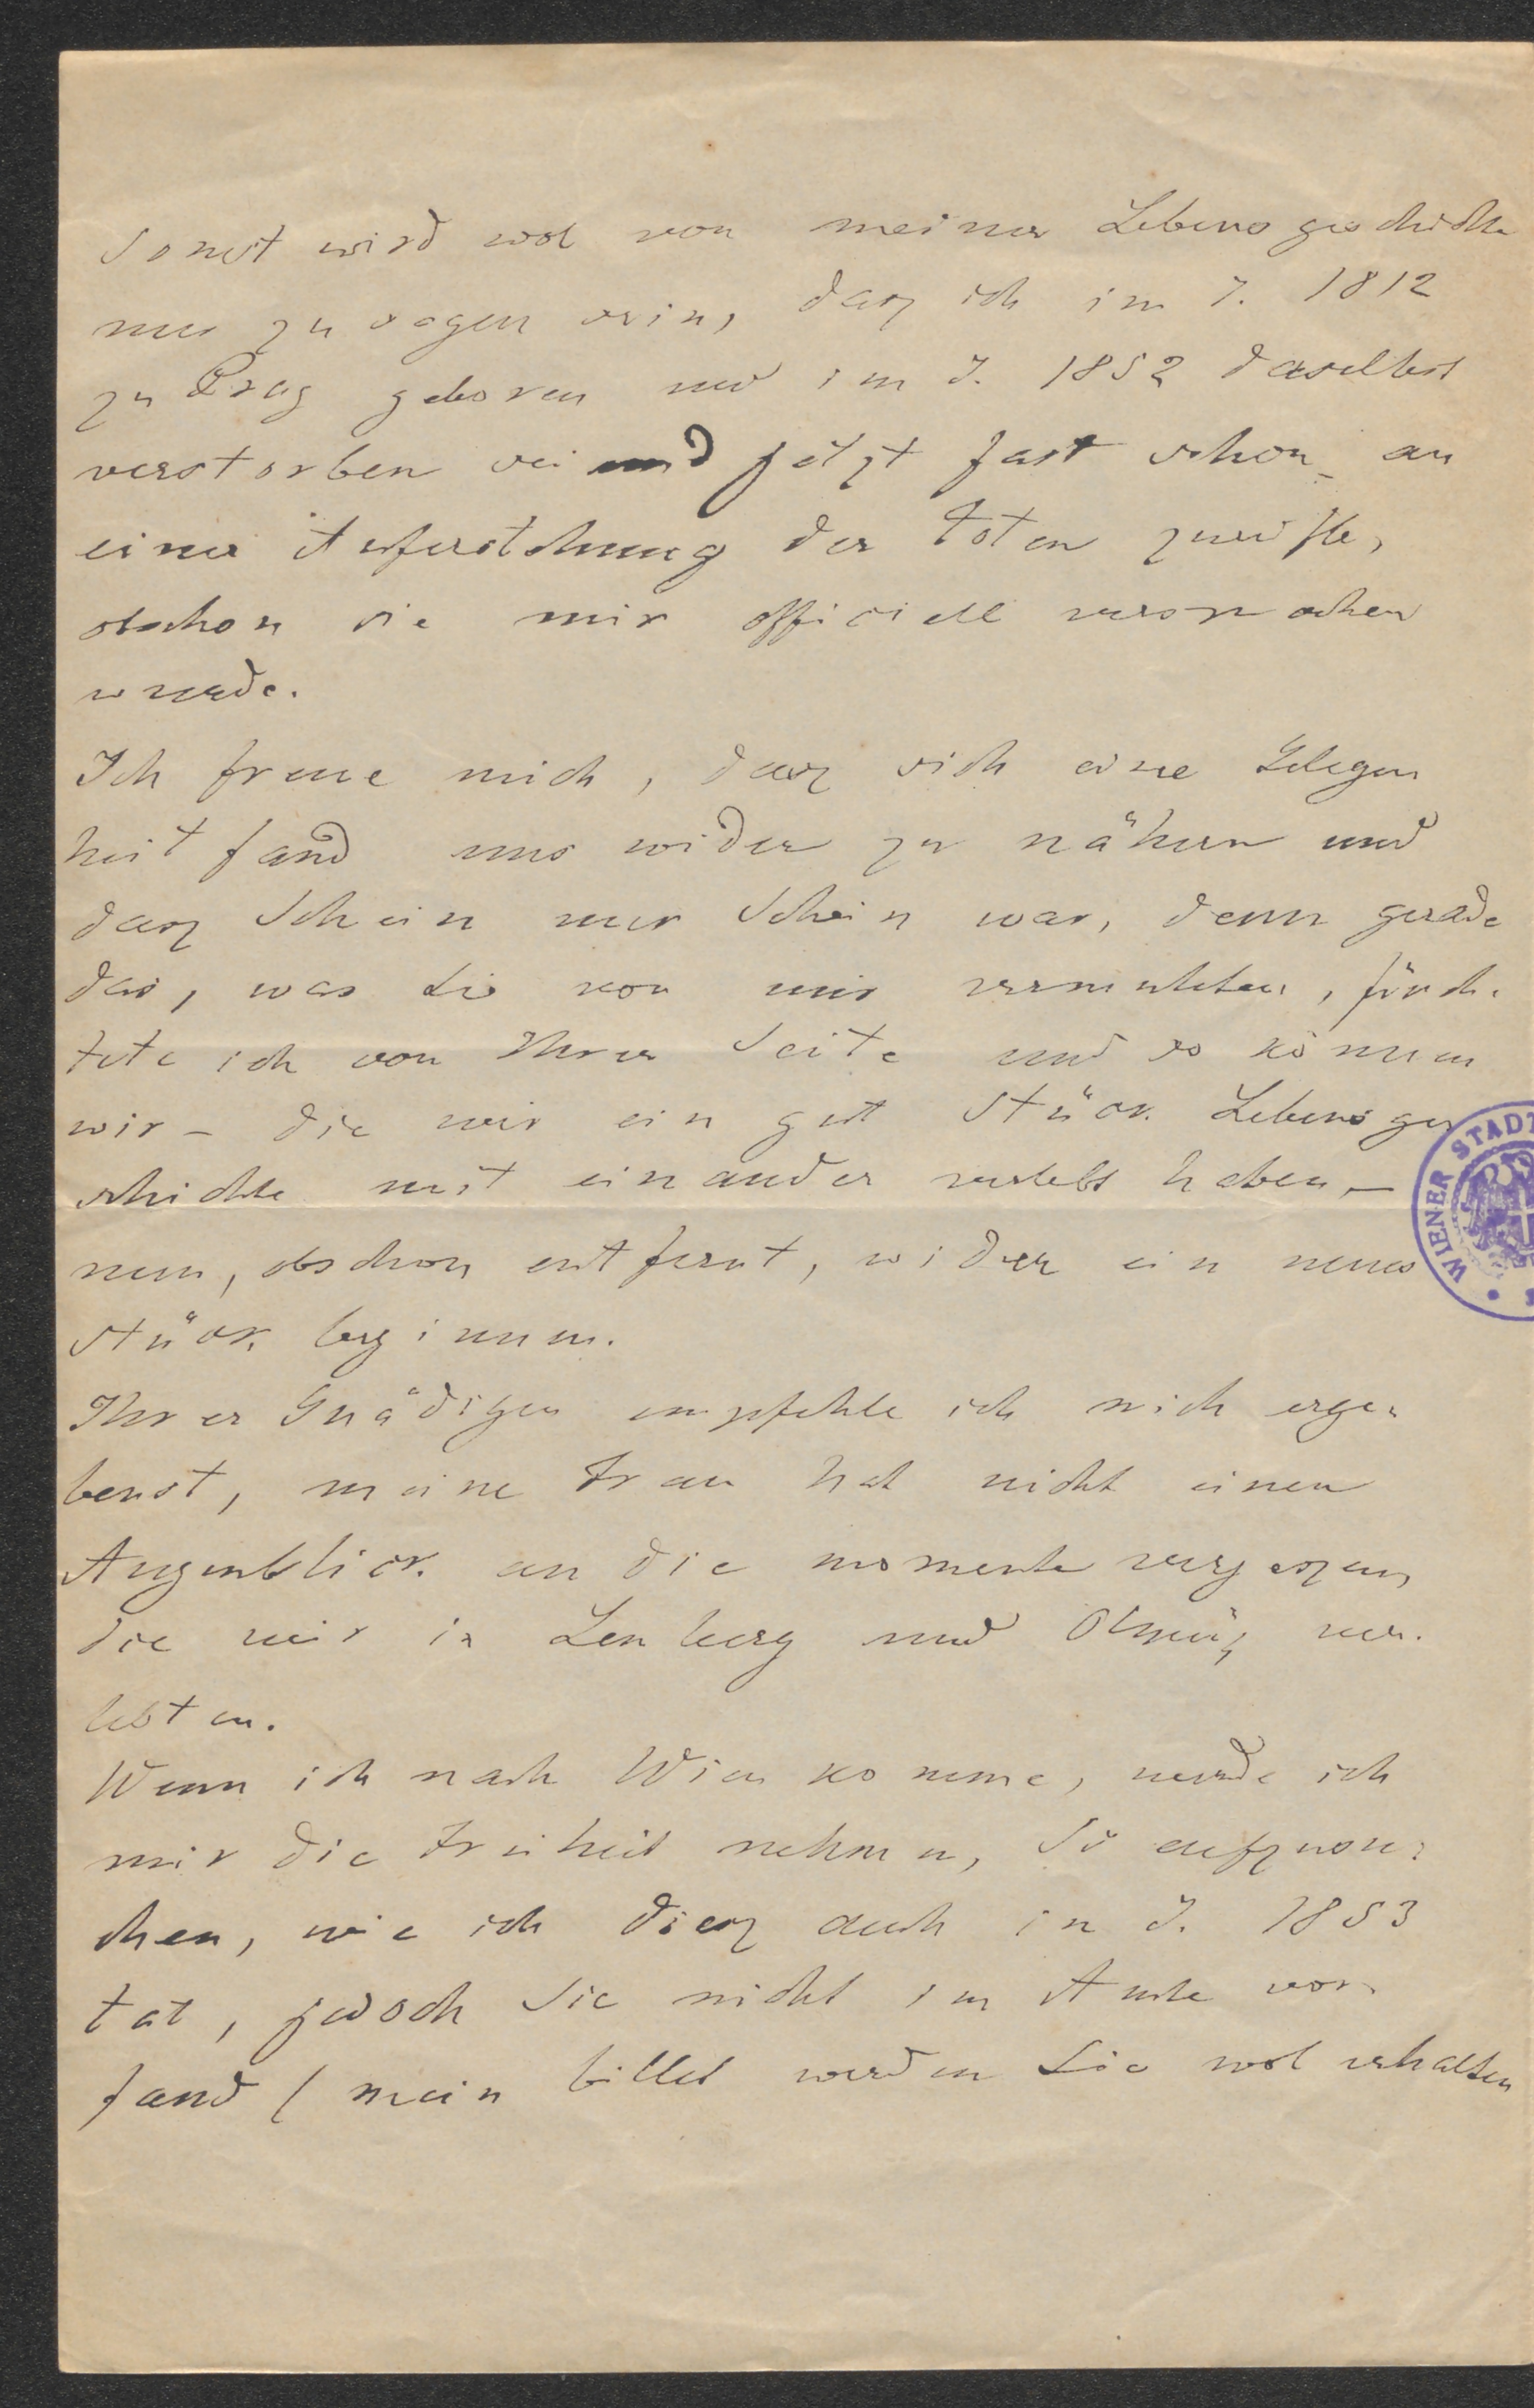 Sonst wird wol von meiner Lebensgeschichte
nur zu sagen sein, dasz ich im J. 1812
zu Prag geboren und im J. 1852 daselbst
verstorben sei und jetzt fast schon an
einer Auferstehung der Toten zweifle,
obschon sie mir officiell versprochen
wurde.
Ich freue mich, dasz sich eine Gelegen
heit fand uns wider zu nähern und
dasz Schein nur Schein war, denn gerade
das, was Sie von mir vermuteten, fürch-
tete ich von Ihrer Seite und so können
wir – die wir ein gut Stück Lebensge
schichte mit einander verlebt haben –
nun, obschon entfernt, wider ein neues
Stück beginnen.
Ihrer Gnädigen empfehle ich mich erge-
benst, meine Frau hat nicht einen
Augenblick an die momente vergeszen,
die wir in Lemberg und Olmüz ver-
lebten.
Wenn ich nach Wien komme, werde ich
mir die Freiheit nehmen, Sie aufzusu-
chen, wie ich diesz auch im J. 1853
tat, jedoch Sie nicht im Amte vor-
fand (mein billet werden Sie wol erhalten
WIENER STADT